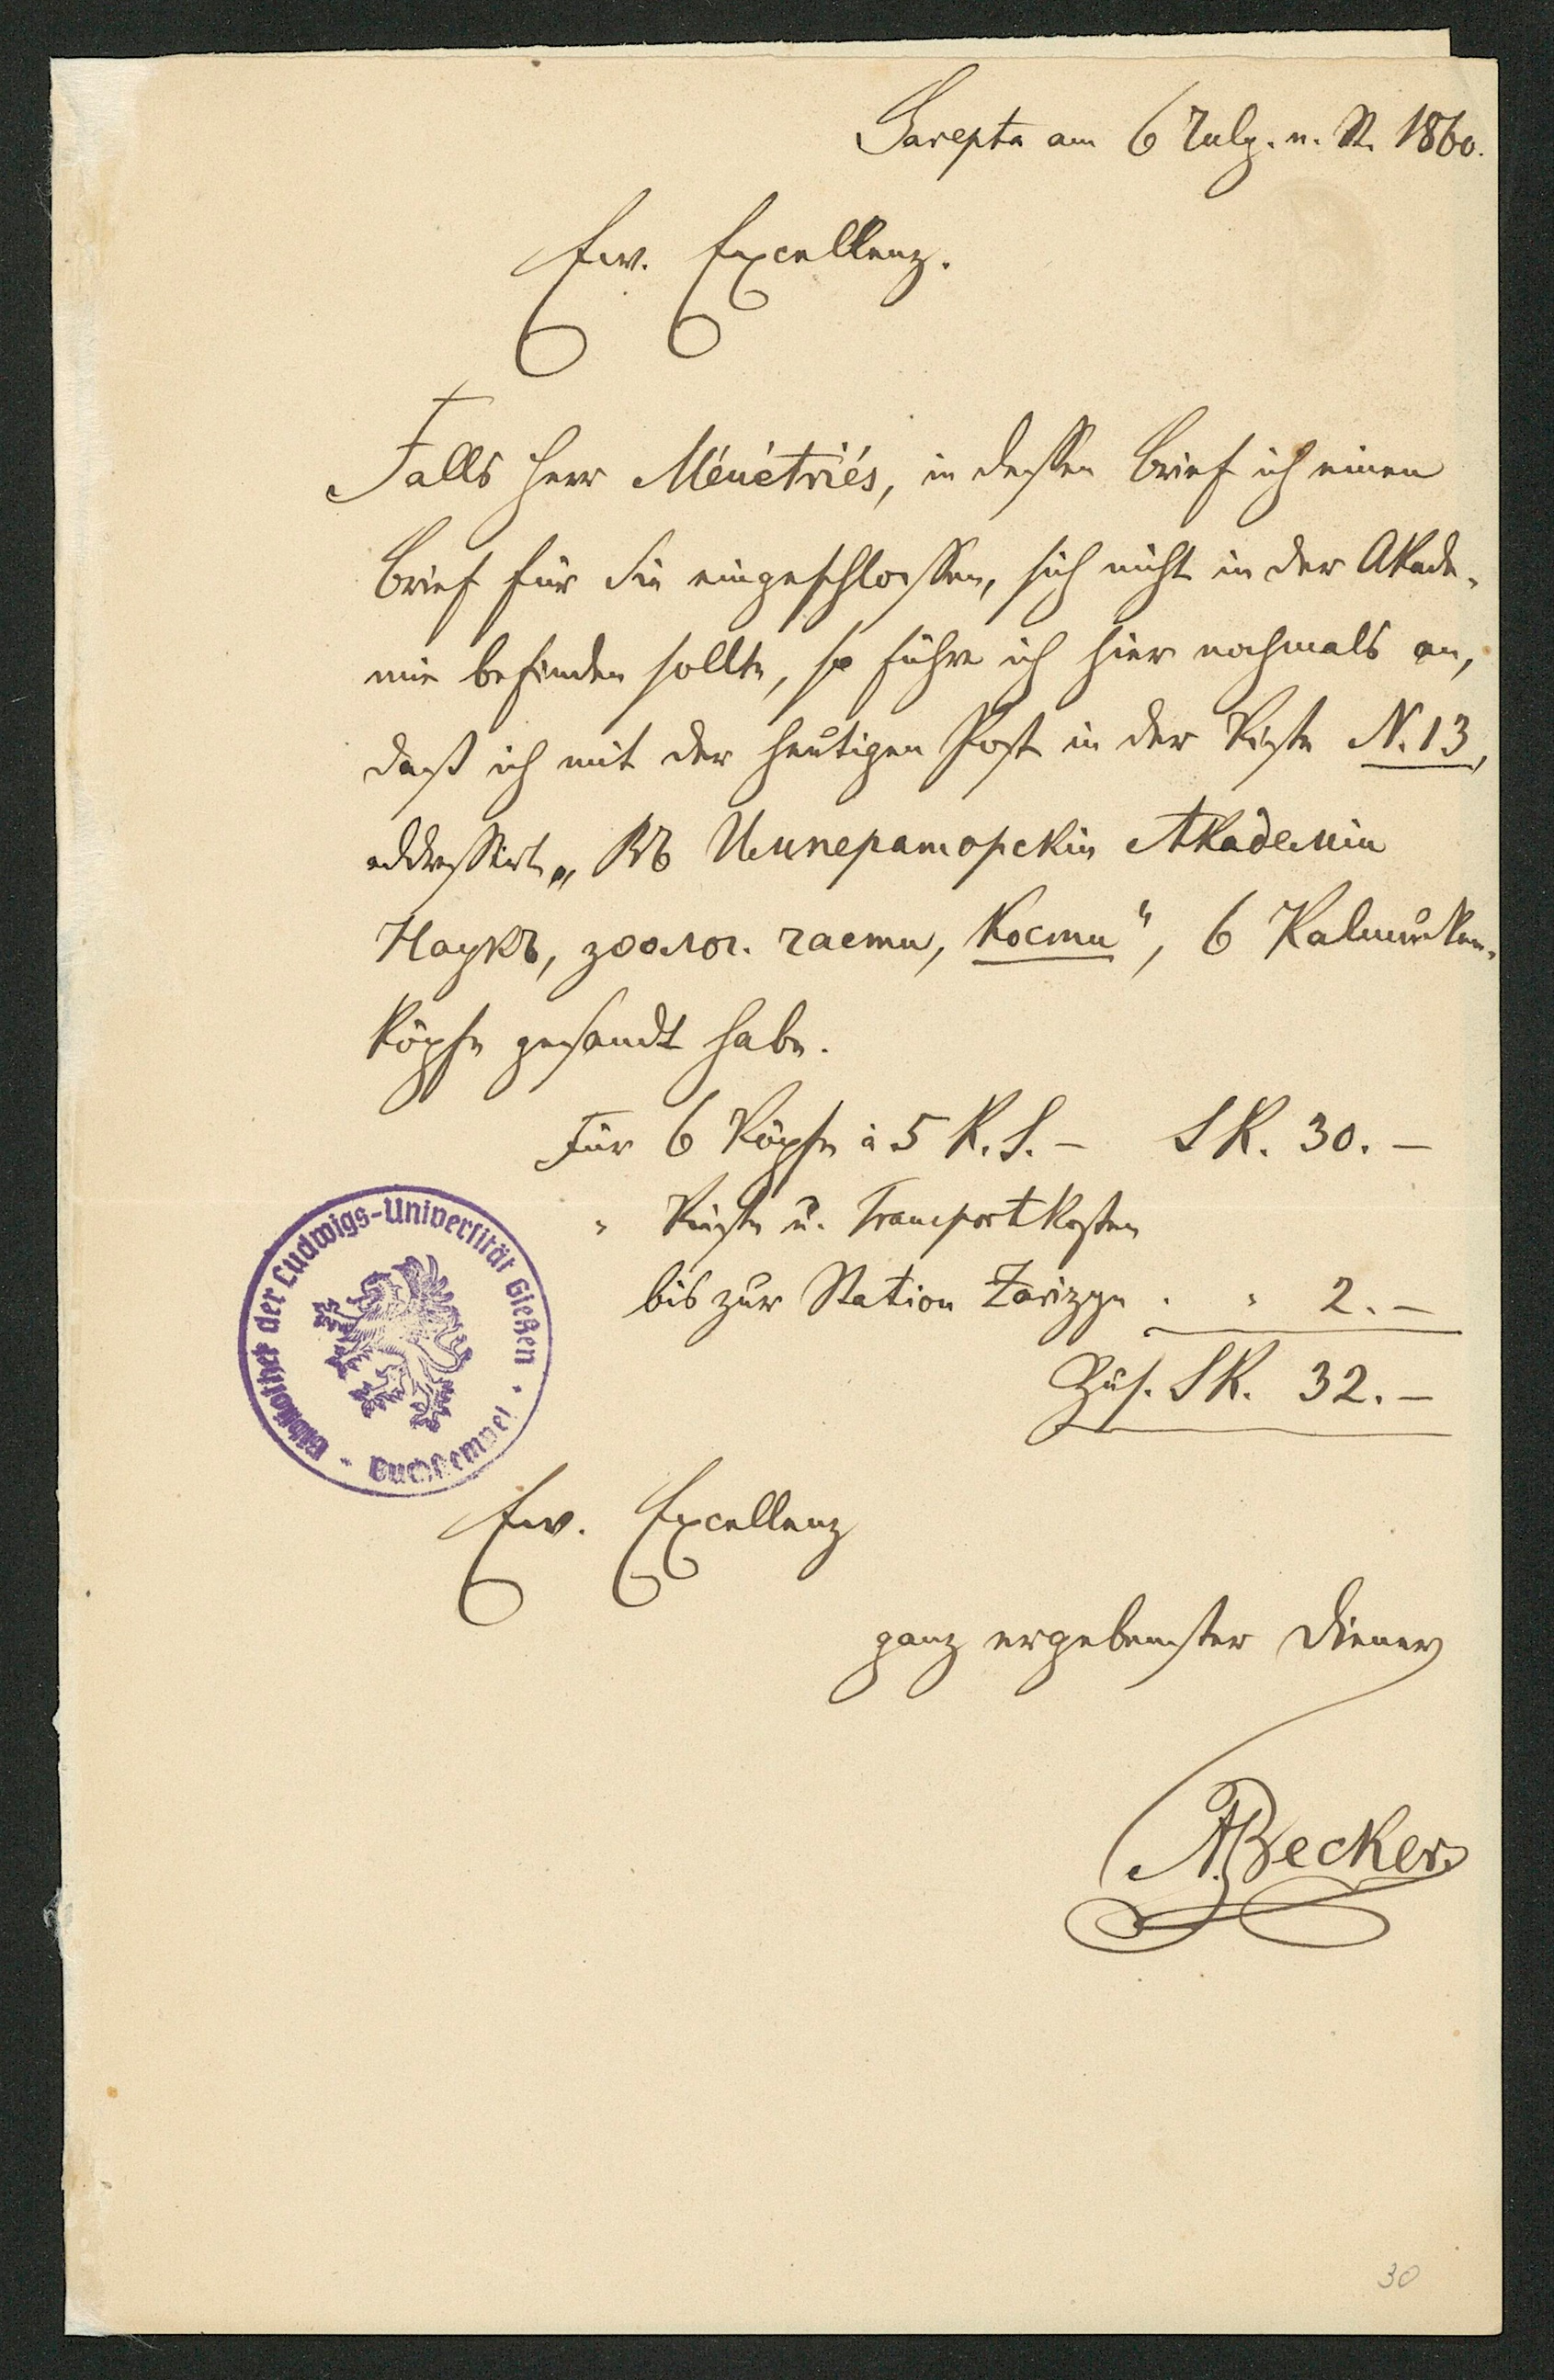 Sarepta am 6 July. n. St. 1860.
Ew. Excellenz.
Falls Herr Ménétriés, in dessen Brief ich einen
Brief für Sie eingeschlossen, sich nicht in der Akade-
mie befinden sollte, so führe ich hier nochmals an,
daß ich mit der heutigen Post in der Kiste N. 13,
addressirt „Въ Императорскiя Академiи
Наукъ, зоолог. части, Кости“, 6 Kalmüken-
köpfe gesandt habe.
Für 6 Köpfe à 5 R. S. – S R. 30. –
" Kiste u. Transportkosten
bis zur Station Zarizyn . " 2. –
Zus. S R. 32. –
Bibliothek der Ludwigs-Universität Gießen · Buchstempel ·
Ew. Excellenz
ganz ergebenster Diener
A. Becker.
30